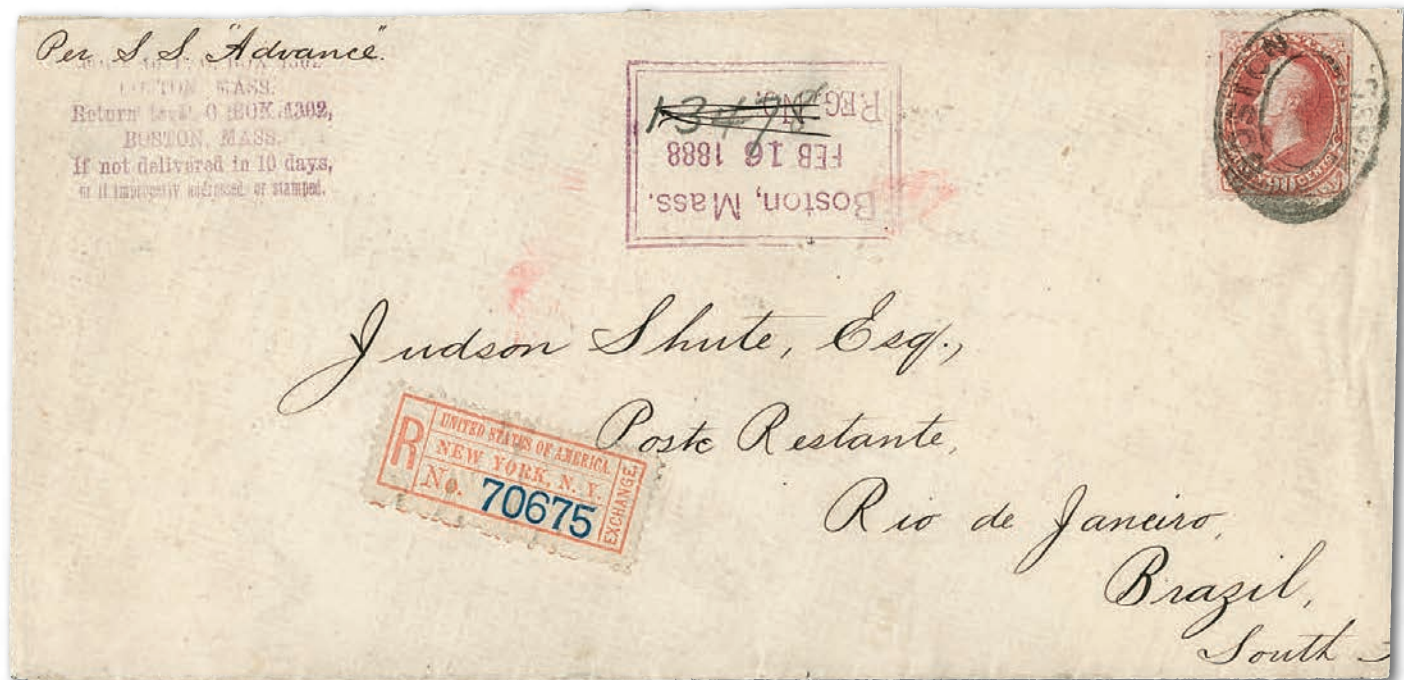 Per S. S. "Advance".
BOSTON, MASS.
Return to P. O. BOX 4302,
BOSTON, MASS.
If not delivered in 10 days,
or if improperly addressed or stamped.
Boston, Mass.
FEB 16 1888
REG. NO.
BOSTON
CENTS
Judson Shute, Esq.,
Poste Restante,
Rio de Janeiro,
Brazil,
South
R
UNITED STATES OF AMERICA.
NEW YORK, N. Y.
No. 70675
EXCHANGE.